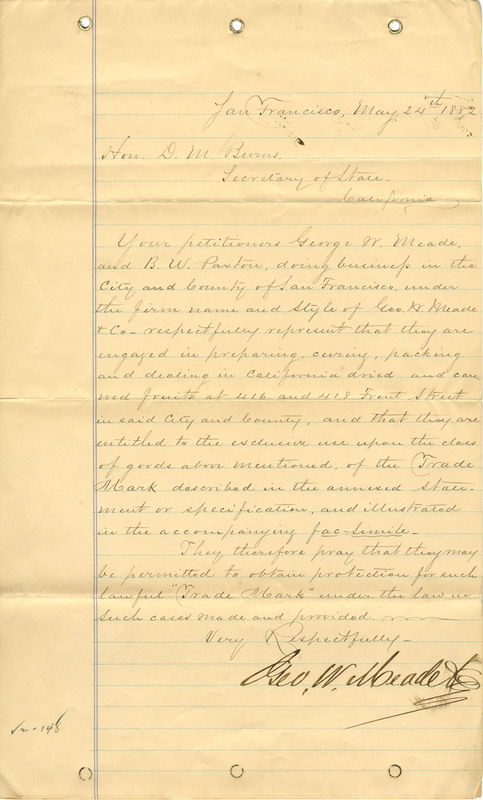 San Francisco, May 24th 1882
Hon. D. M. Burns
Secretary of State
California
Your petitioners George W. Meade,
and B. W. Paxton, doing business in the
City and County of San Francisco, under
the firm name and style of Geo. W. Meade
& Co- respectfully represent that they are
engaged in preparing, curing, packing
and dealing in California dried and can
ned fruits at 416 and 418 Front Street
in said City and County, and that they are
entitled to the exclusive use upon the class
of goods above mentioned, of the Trade
Mark described in the annexed state-
ment or specification, and illustrated
in the accompanying fac-simile-
They therefore pray that they may
be permitted to obtain protection for such
lawful "Trade Mark" under the law in
such cases made and provided.
Very Respectfully-
Geo. W. Meade & Co